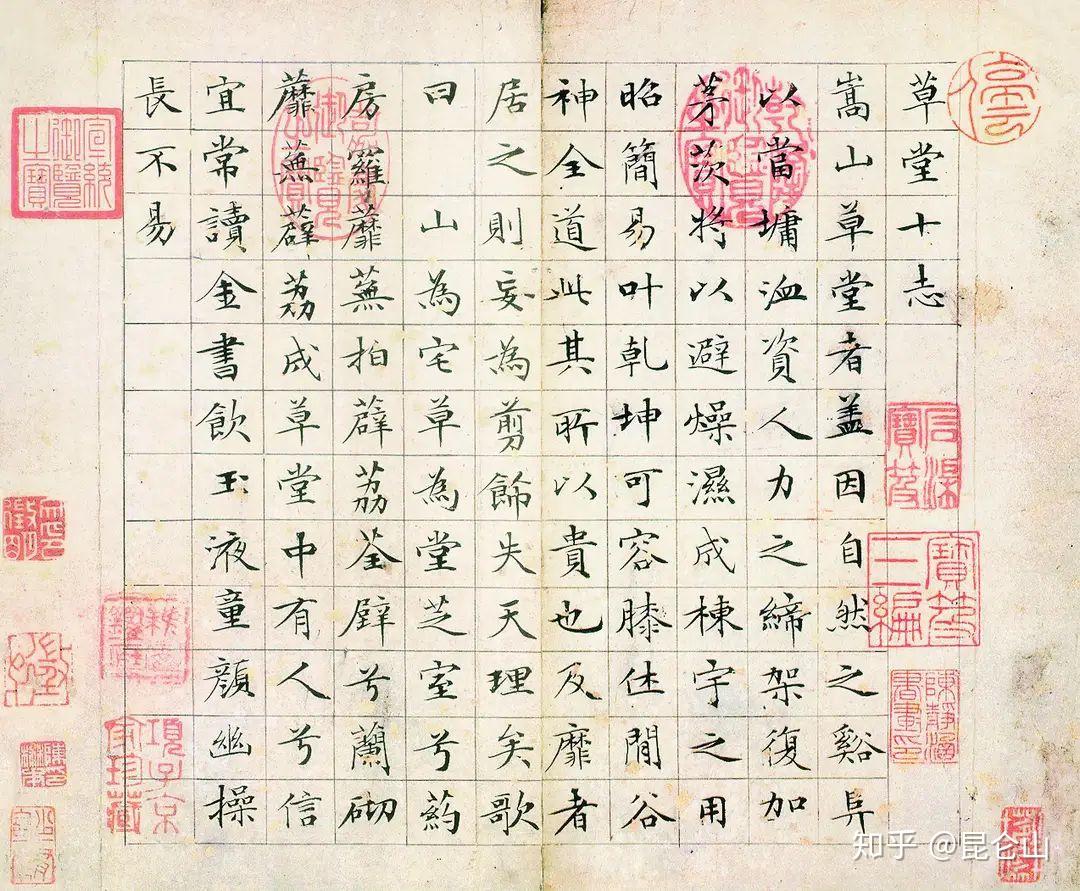 草堂十志
嵩山草堂者盖因自然之谿阜
以當墉洫資人力之締架復加
茅茨将以避燥濕成棟宇之用
昭簡易叶乹坤可容膝休閒谷
神全道此其所以貴也及靡者
居之則妄為剪餙失天理矣歌
曰 山為宅草為堂芝室兮葯
房羅蘼蕪拍薜荔荃壁兮蘭砌
蘼蕪薜荔成草堂中有人兮信
宜常讀金書飲玉液童顔幽操
長不易
石渠寶笈
寶笈三編
宣統御覽之寶
項子京家珍藏
知乎 @昆仑山